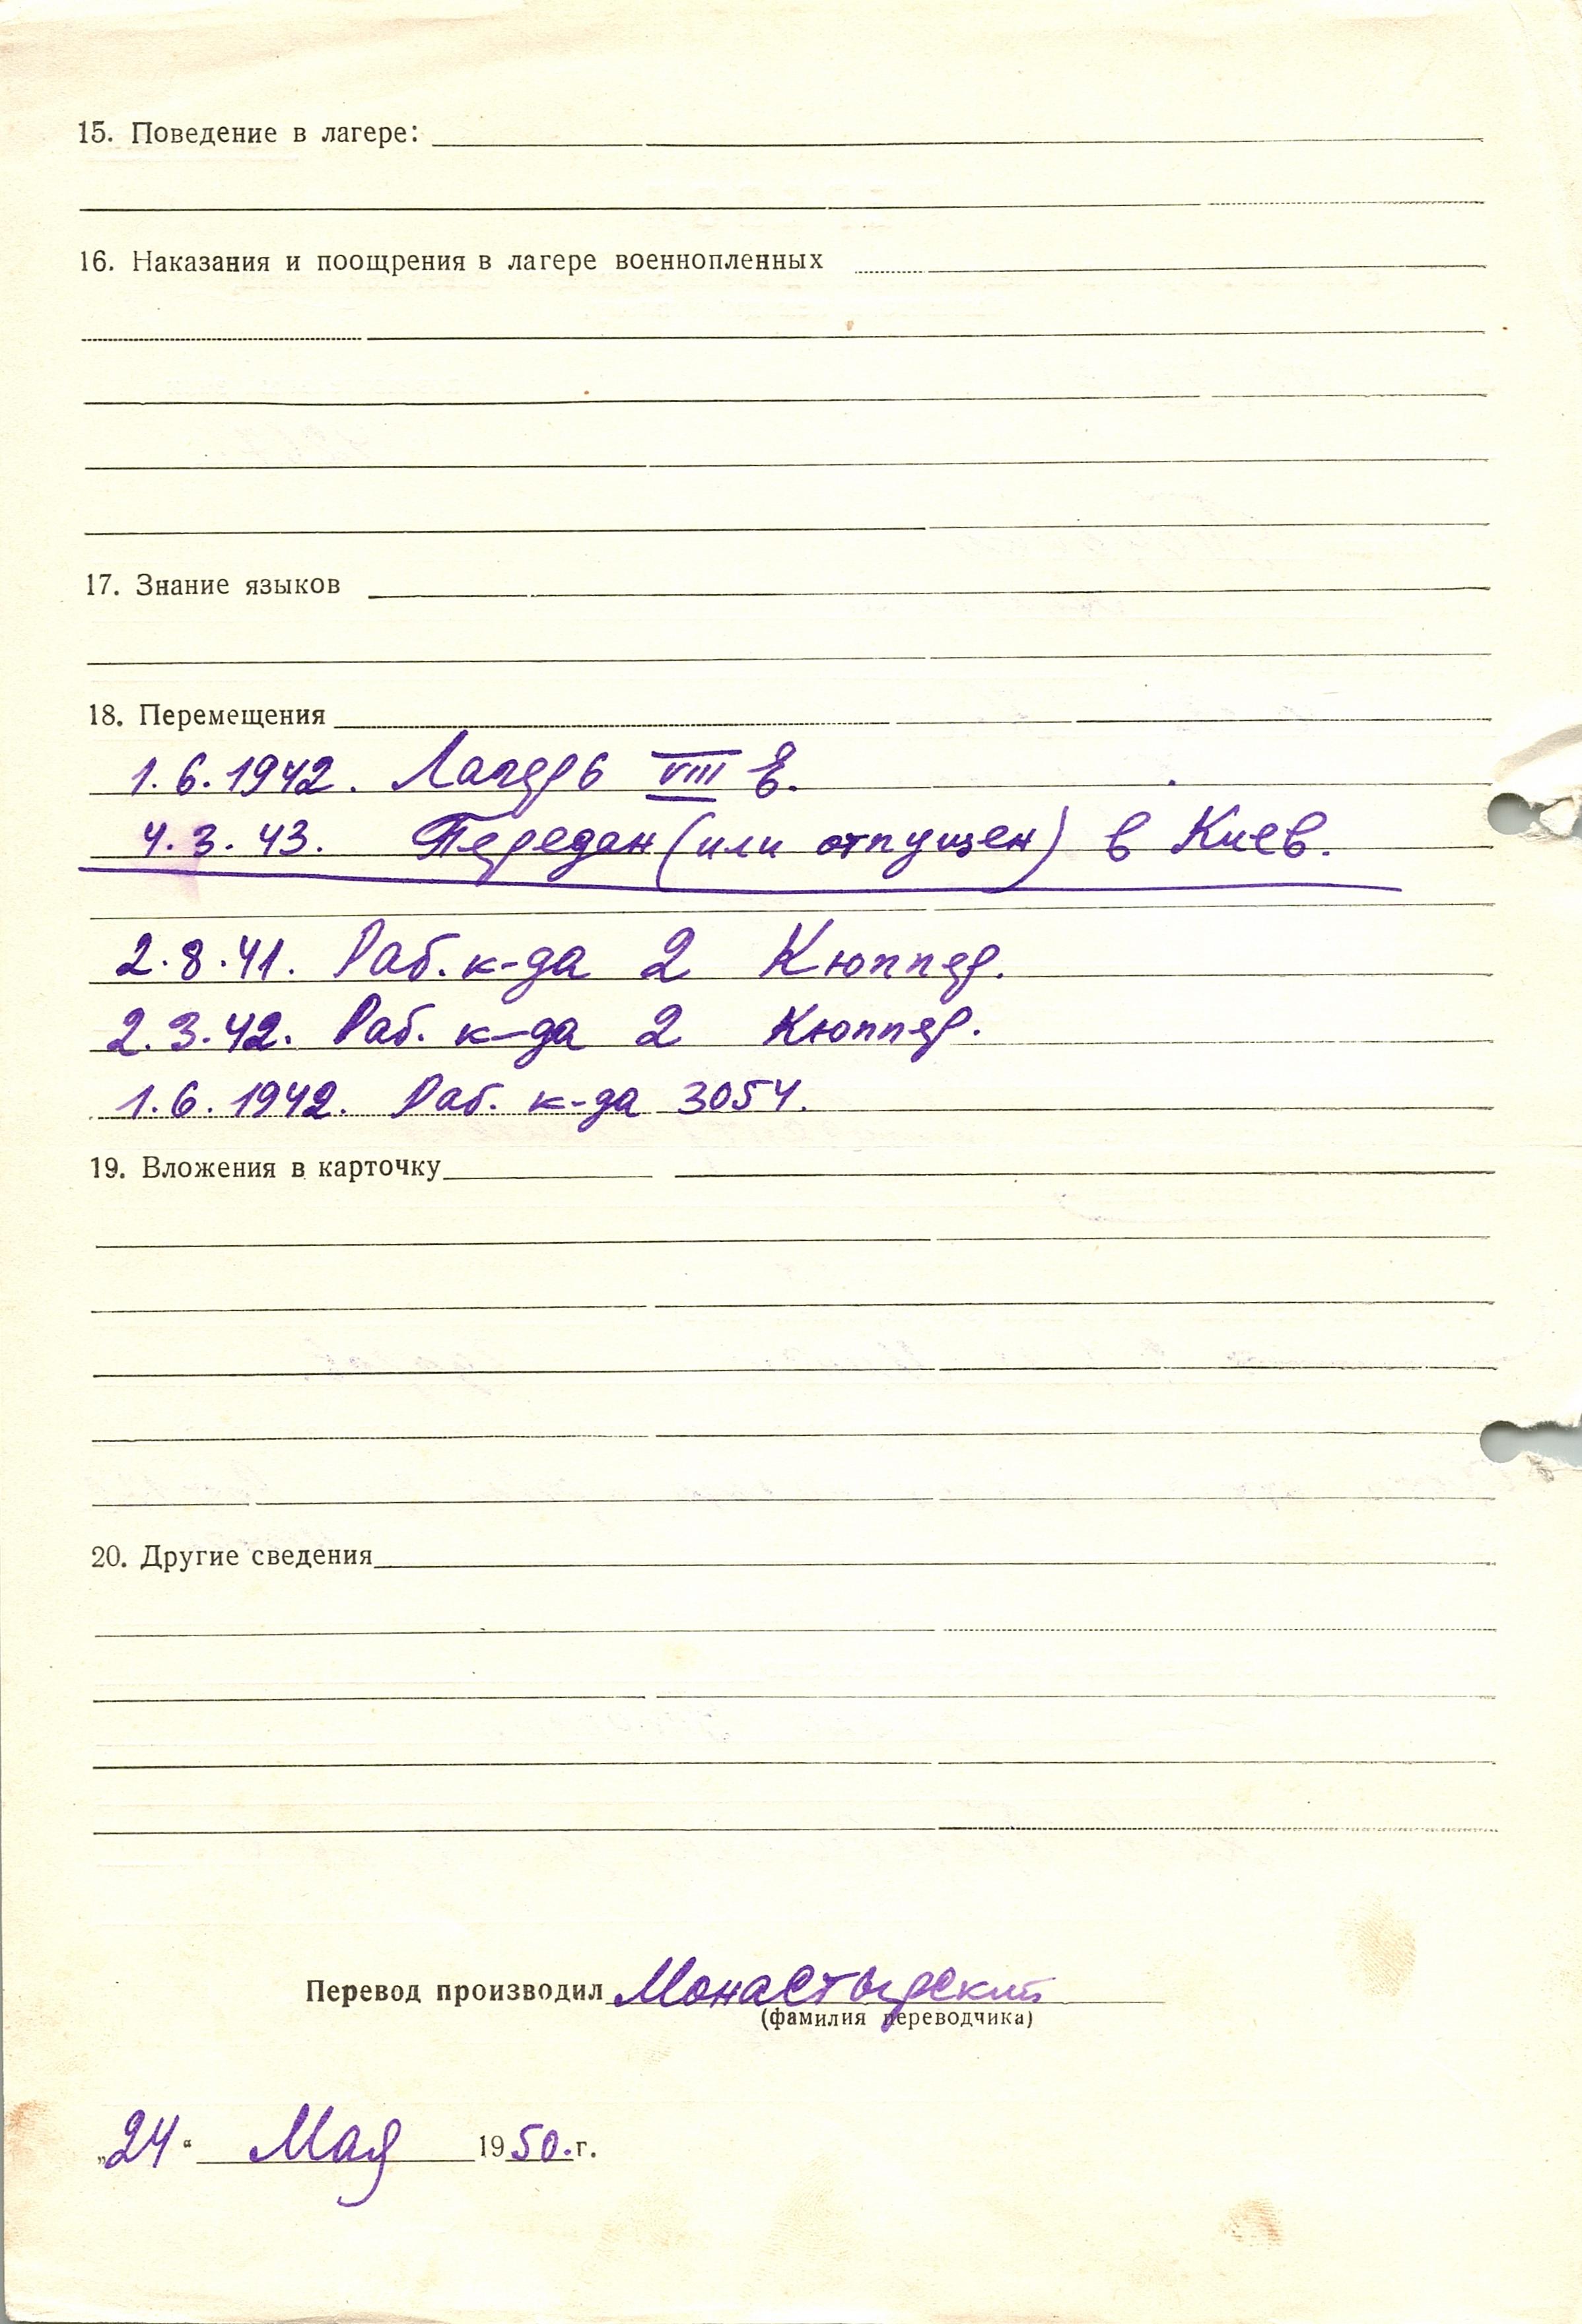 15. Поведение в лагере:
16. Наказания и поощрения в лагере военнопленных
17. Знание языков
18. Перемещения
1.6.1942. Лагерь VIII Е.
4.3.43. Передан (или отпущен) в Киев.
2.8.41. Раб. к-да 2 Кюппер.
2.3.42. Раб. к-да 2 Кюппер.
1.6.1942. Раб. к-да 3054.
19. Вложения в карточку
20. Другие сведения
Перевод производил Монастырский
(фамилия переводчика)
„24“ Мая 1950.г.